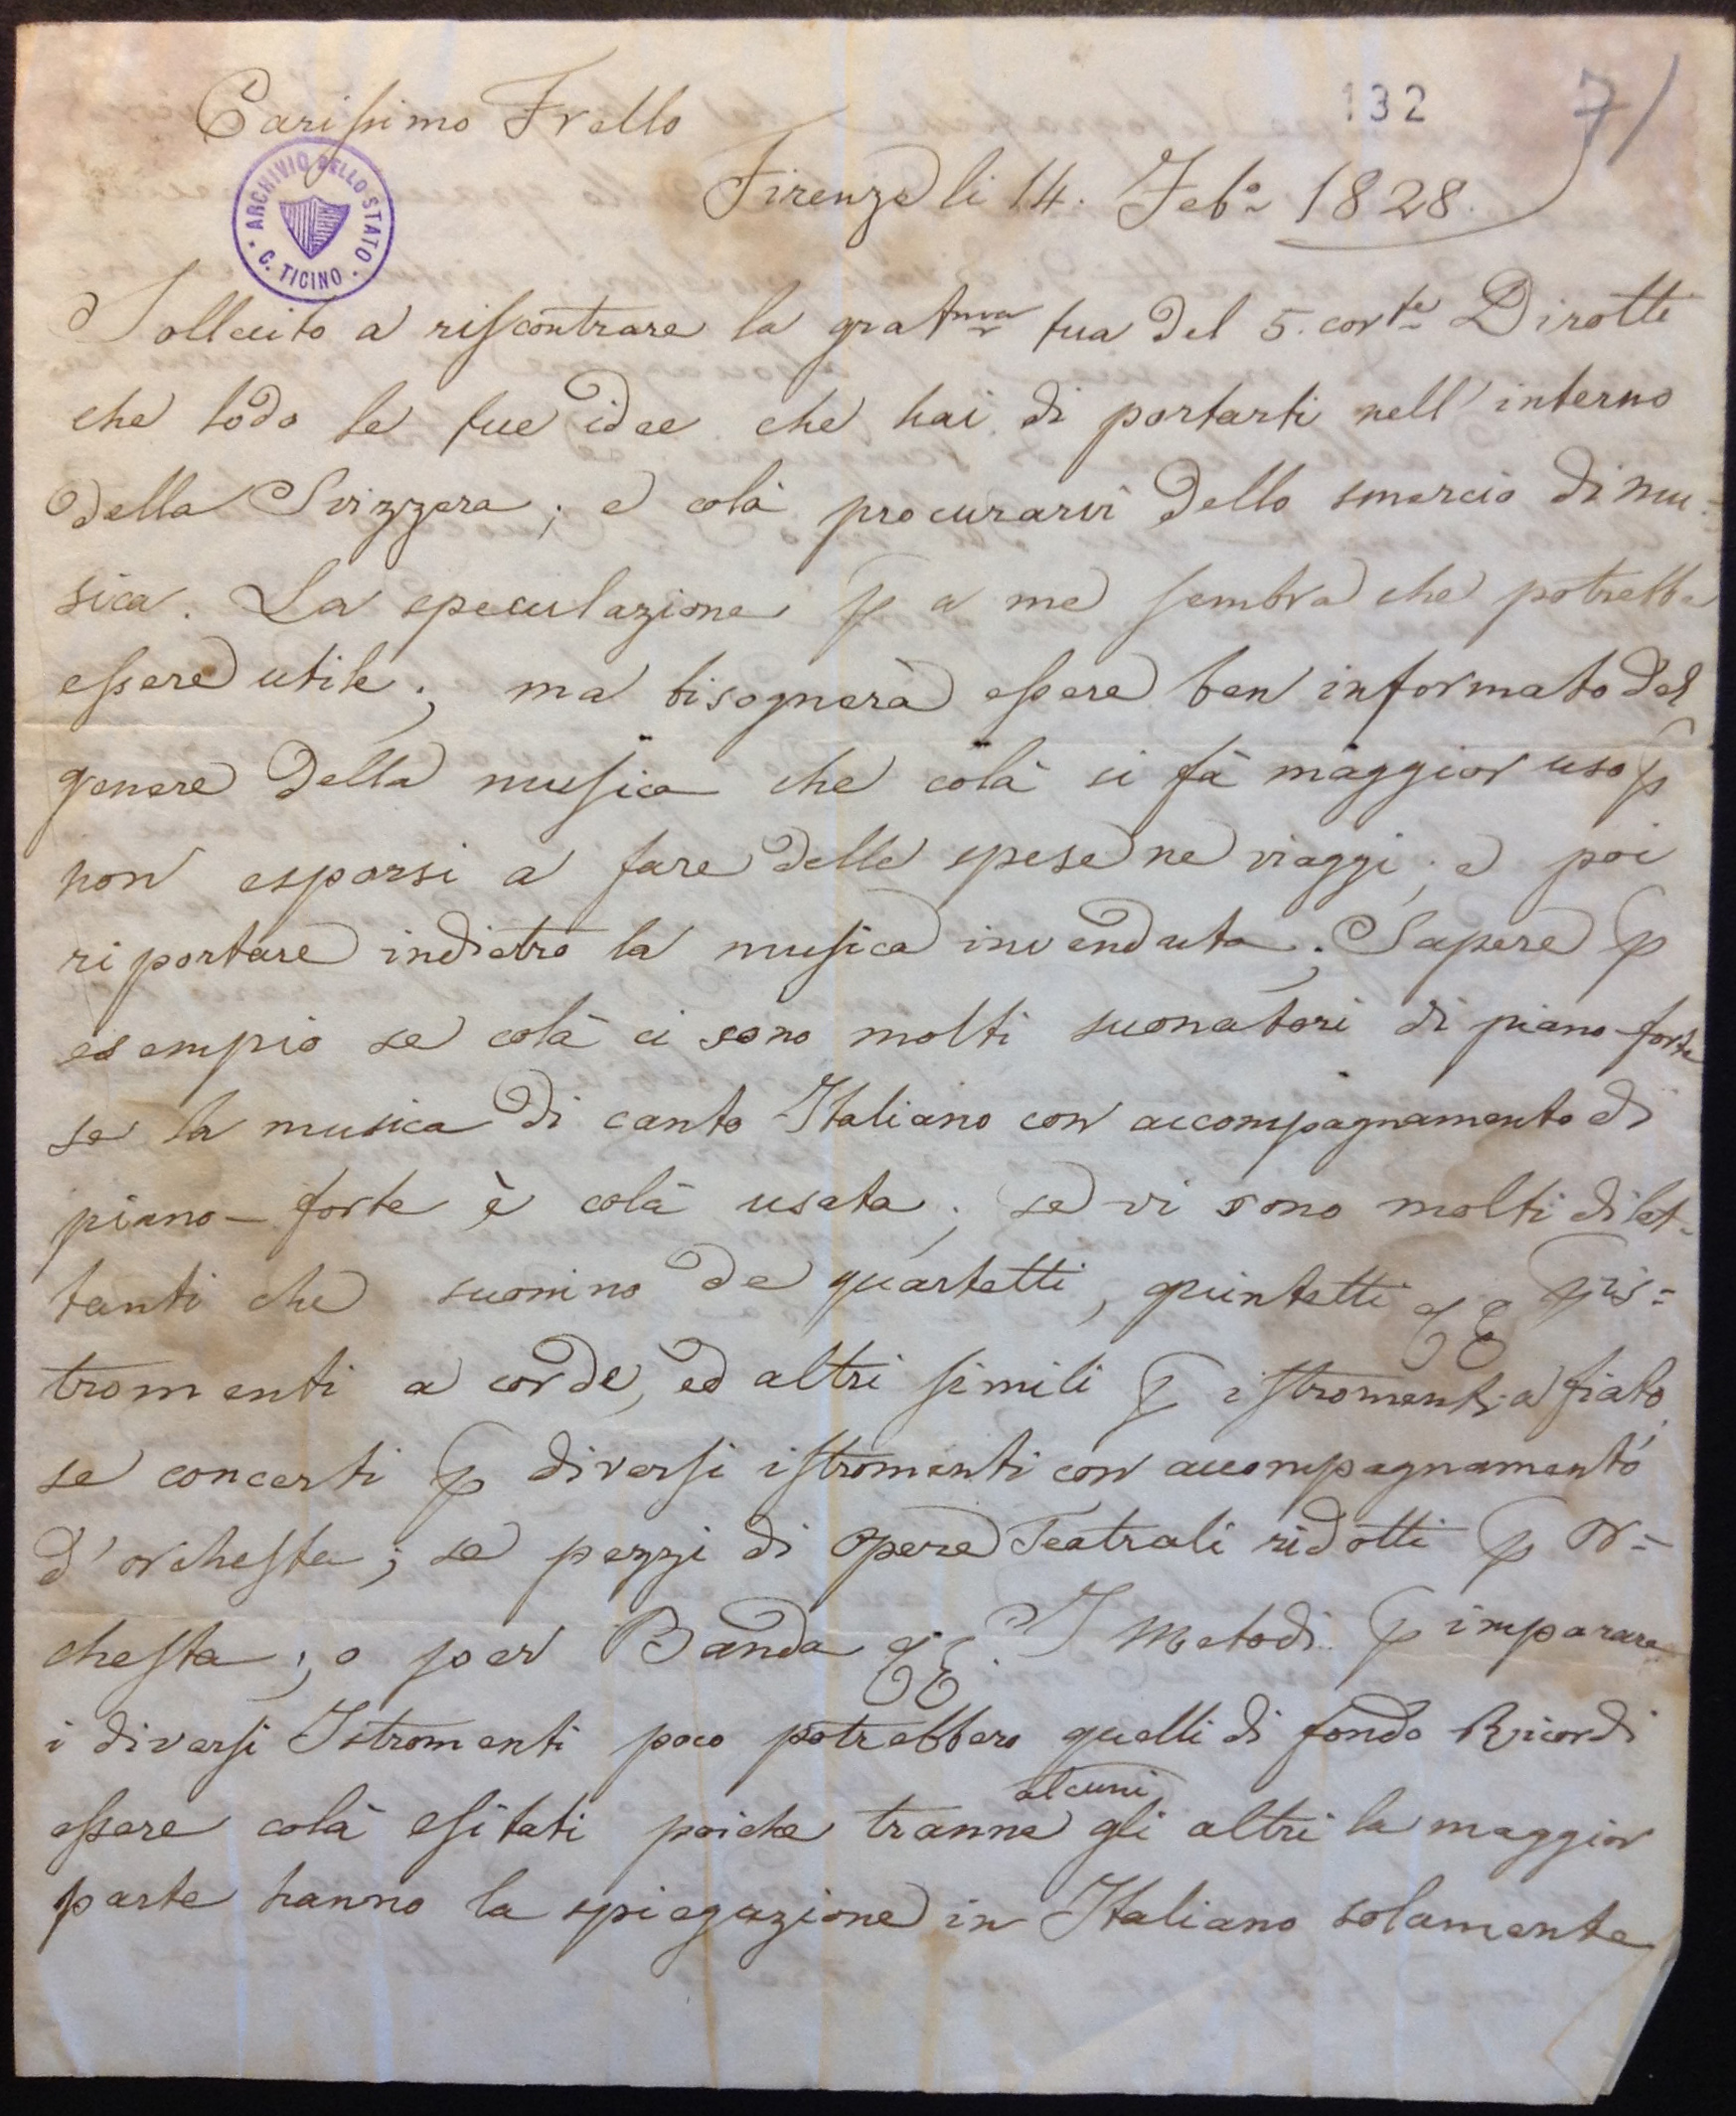 132
71
Carissimo Frello
ARCHIVIO DELLO STATO
C. TICINO
Firenze li 14. Feb.o 1828.
Sollecito a riscontrare la gratma tua del 5. corte Dirotti
che lodo le tue idee che hai di portarti nell' interno
della Svizzera; e colà procurarvi dello smercio di mu=
sica. La speculazione p a me sembra che potrebbe
essere utile; ma bisognerà essere ben informato del
genere della musica che colà si fà maggior uso p
non esporsi a fare delle spese ne viaggi; e poi
riportare indietro la musica invenduta; Sapere p
esempio se colà ci sono molti suonatori di piano-forte
se la musica di canto Italiano con accompagnamento di
piano-forte è colà usata; se vi sono molti dilet-
tanti che suonino de quartetti, quintetti p is=
tromenti a corde, ed altri simili p istromenti a fiato,
se concerti p diversi istromenti con accompagnamento
d'orchesta; se pezzi di opere Teatrali ridotti p or=
chesta; o per Banda. I Metodi p imparare
i diversi Istromenti poco potrebbero quelli di fondo Ricordi
alcuni
essere colà esitati poiche tranne gli altri la maggior
parte hanno la spiegazione in Italiano solamente